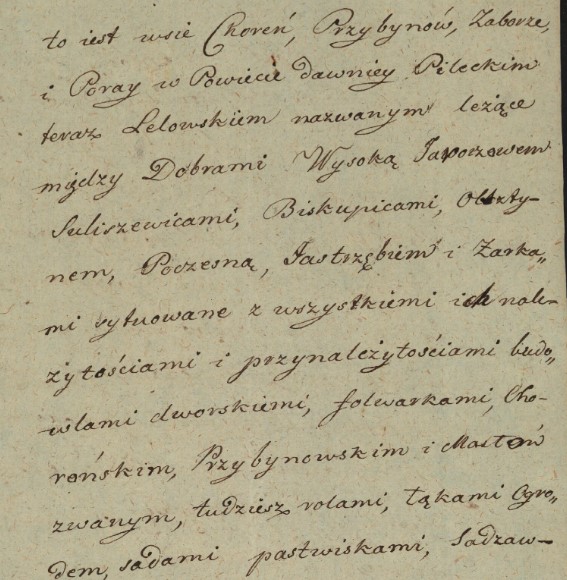 to iest wsie Choreń, Przybynów, Zaborze,
i Poray w Powiecie dawniey Pileckim
teraz Lelowskiem nazwanym leżące
między Dobrami Wysoką Jaworzowem
Suliszewicami, Biskupicami, Olszty-
nem, Poczesną, Jastrzębiem i Zarka„
mi sytuowane z wszystkiemi ich nale-
żytościami i przynależytościami budo„
wlami dworskiemi, folwarkami, Cho-
rońskim, Przybynowskim i Mastoń
zwanym, tudziesz rolami, łąkami Ogro„
dem, sadami pastwiskami, Sadzaw-